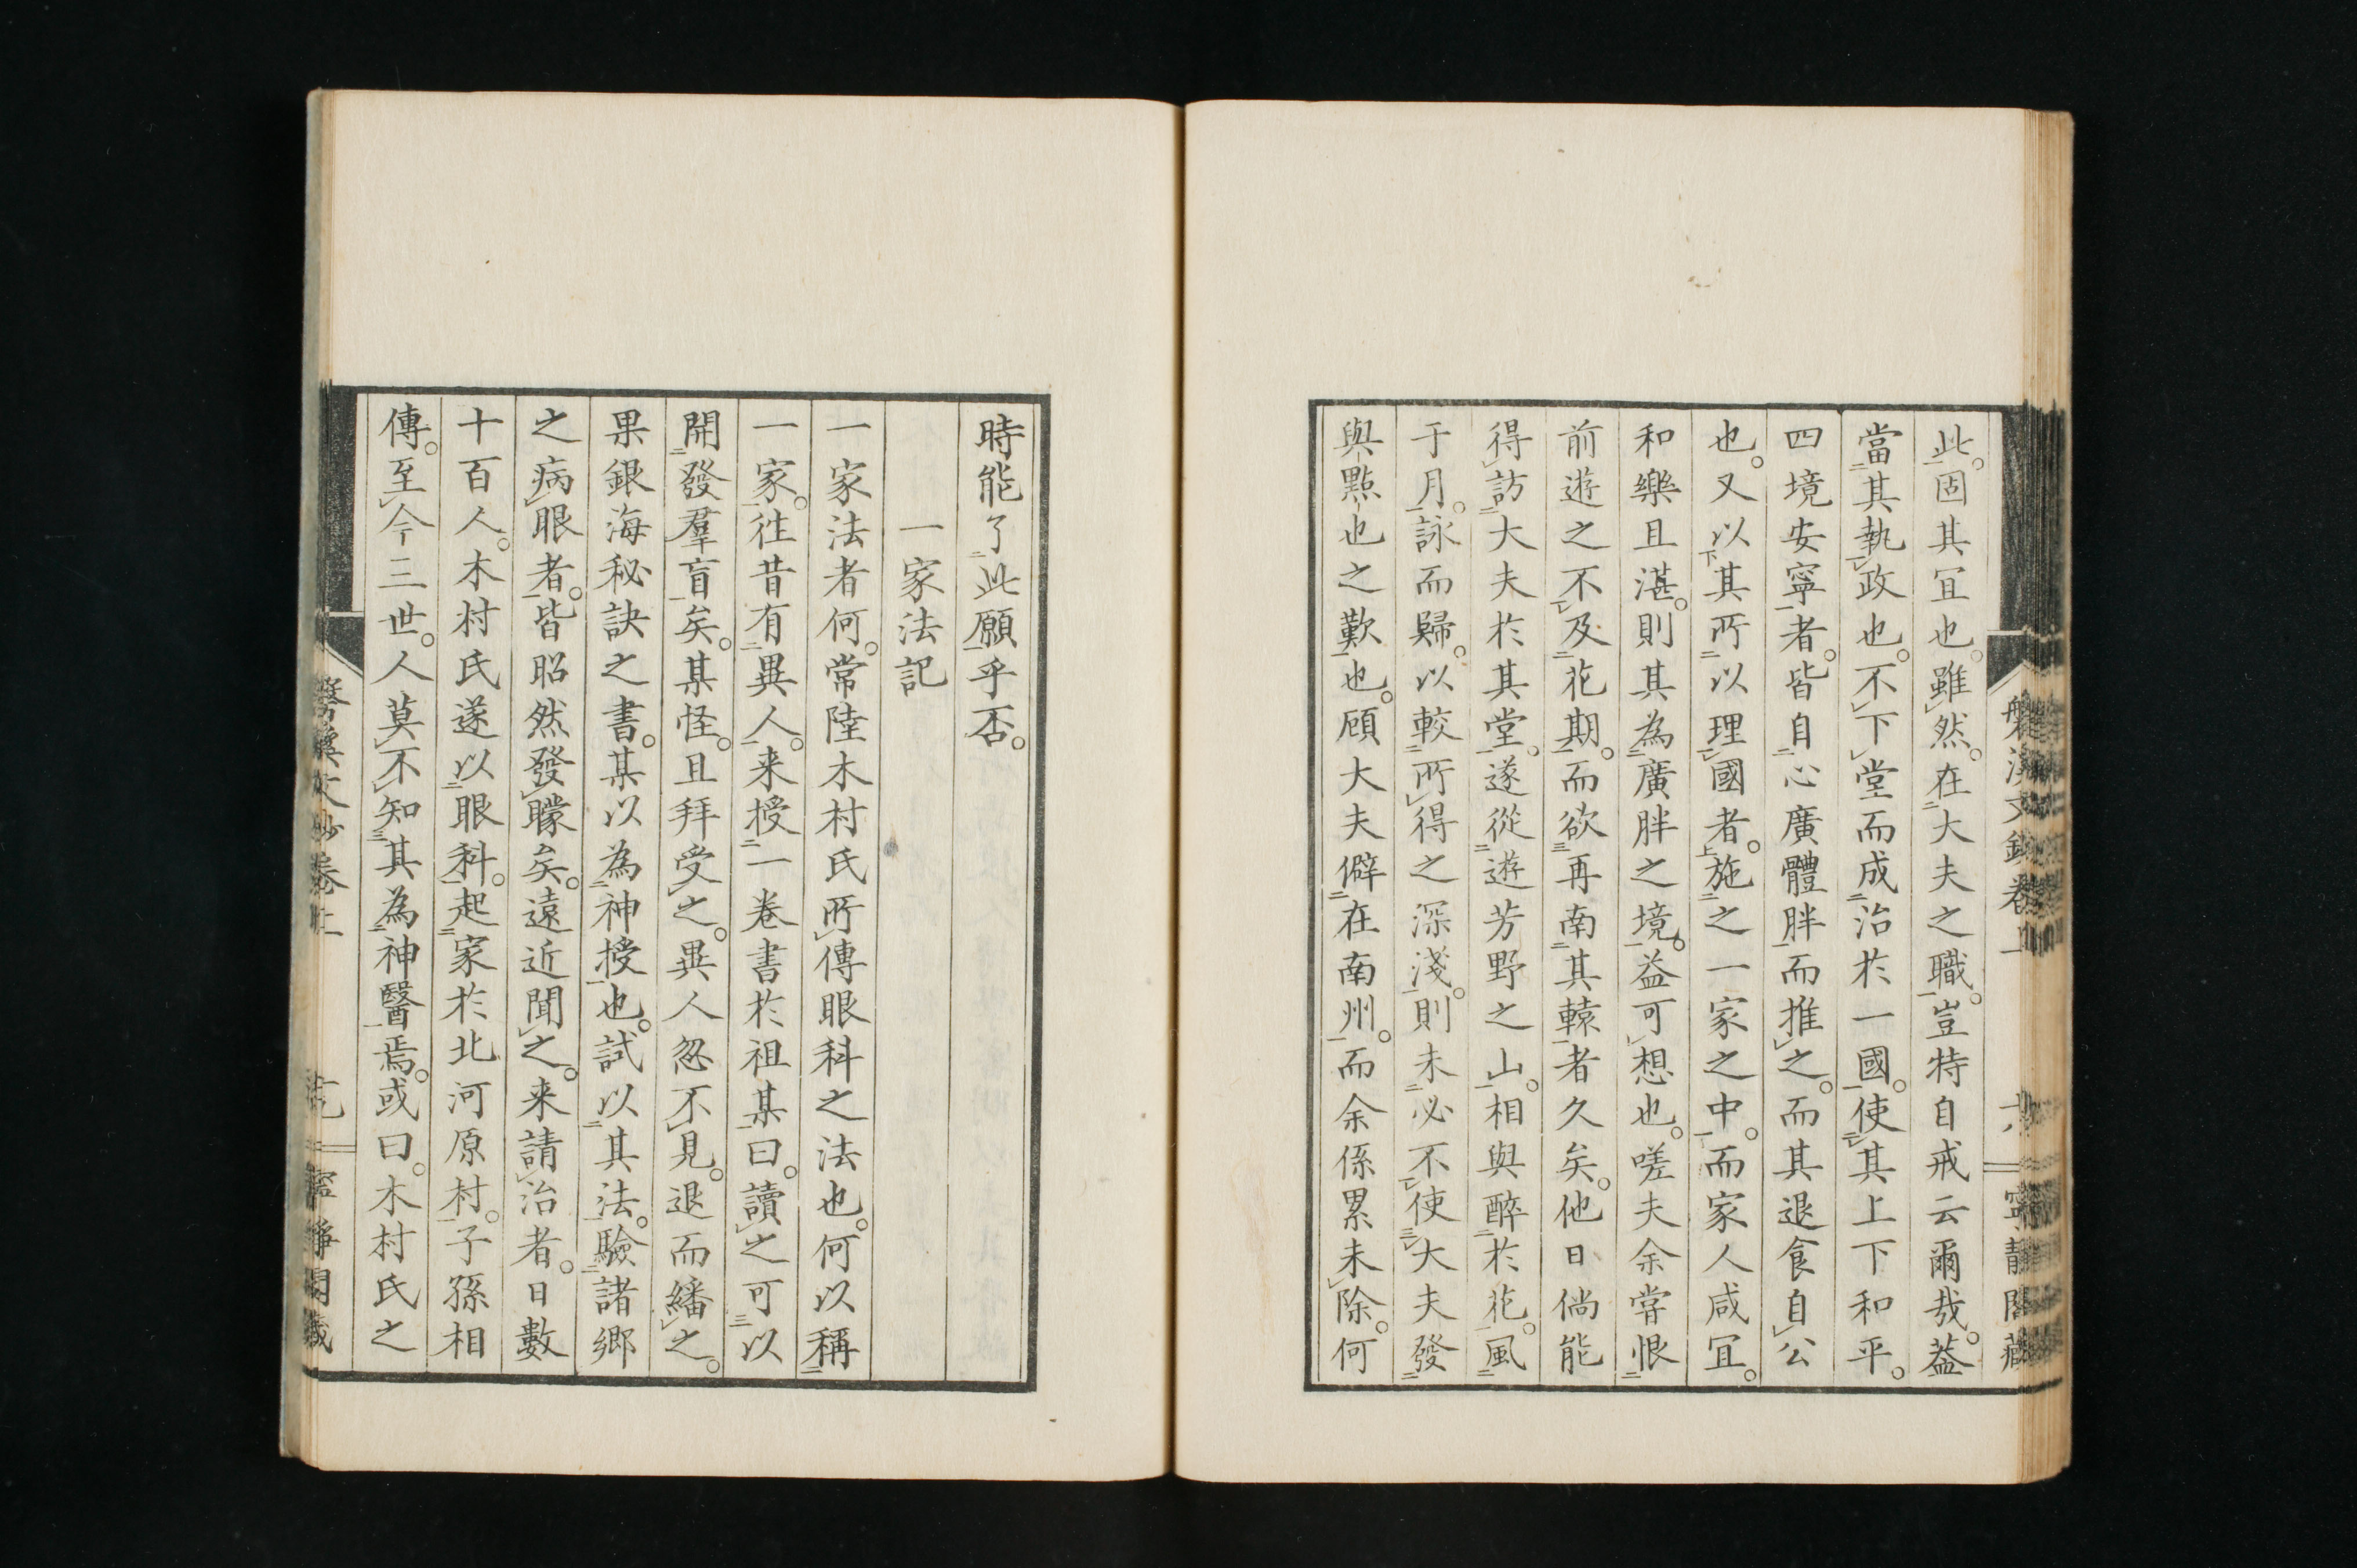 此。固其宜也。雖然。在大夫之職。豈特自戒云爾哉。蓋
當其執政也。不下堂而成治於一國。使其上下和平。
四境安寧者。皆自心廣體胖而推之。而其退食自公
也。又以其所以理國者。施之一家之中。而家人咸宜。
和樂且湛。則其為廣胖之境。益可想也。嗟夫余嘗恨
前遊之不及花期。而欲再南其轅者久矣。他日倘能
得訪大夫於其堂。遂從遊芳野之山。相與醉於花。風
于月。詠而歸。以較所得之深淺。則未必不使大夫發
與點也之歎也。顧大夫僻在南州。而余係累未除。何
時能了此願乎否。
一家法記
一家法者何。常陸木村氏所傳眼科之法也。何以稱
一家。往昔有異人。来授一卷書於祖某曰。讀之可以
開發羣盲矣。某怪。且拜受之。異人忽不見。退而繙之。
果銀海秘訣之書。某以為神授也。試以其法。驗諸鄉
之病眼者。皆昭然發矇矣。遠近聞之。来請治者。日數
十百人。木村氏遂以眼科。起家於北河原村。子孫相
傳。至今三世。人莫不知其為神醫焉。或曰。木村氏之